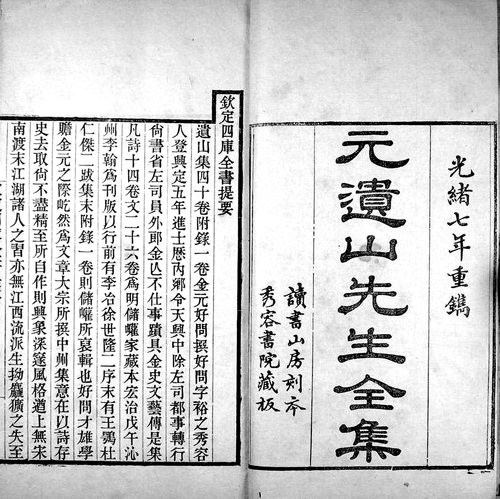 光緒七年重鐫
元遺山先生全集
讀書山房刻本
秀容書院藏板
欽定四庫全書提要
遺山集四十卷附錄一卷金元好問撰好問字裕之秀容
人登興定五年進士歷內鄉令天興中除左司都事轉行
尚書省左司員外郎金亡不仕事蹟具金史文藝傳是集
凡詩十四卷文二十六卷爲明儲巏家藏本宏治戊午沁
州李翰爲刊版以行前有李冶徐世隆二序末有王鶚杜
仁傑二跋集末附錄一卷則儲巏所裒輯也好問才雄學
贍金元之際屹然爲文章大宗所撰中州集意在以詩存
史去取尚不盡精至所自作則興象深邃風格遒上無朱
南渡末江湖諸人之習亦無江西流派生拗麤獷之失至